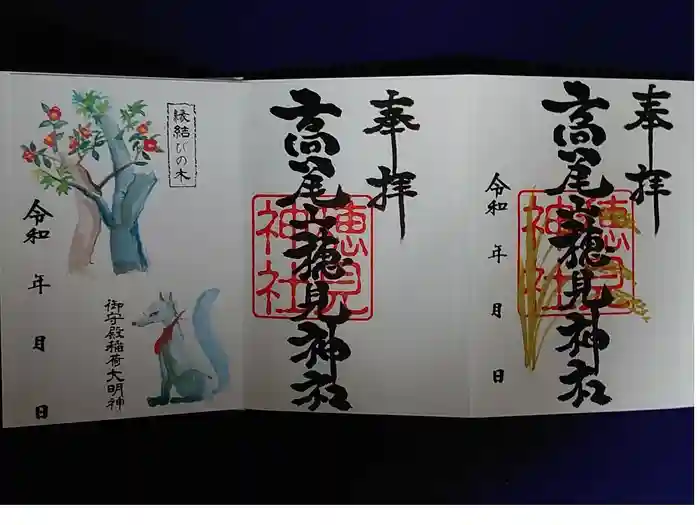 奉拝
高尾山穂見神社
穂見
神社
令和 年 月 日
奉拝
高尾山穂見神社
穂見
神社
縁結びの木
令和 年 月 日
御守殿稲荷大明神